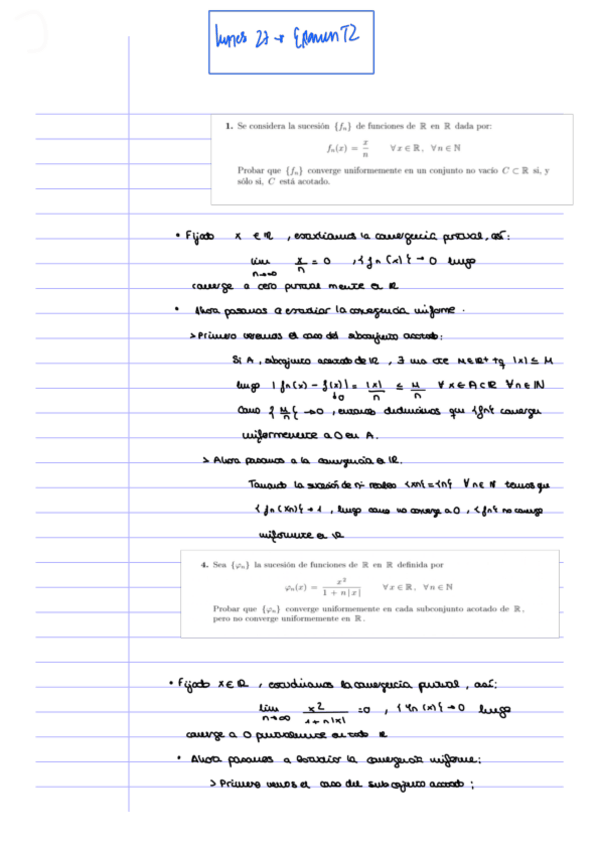 lunes 27 → Examen T2
1. Se considera la sucesión {fₙ} de funciones de ℝ en ℝ dada por:
fₙ(x) = x/n ∀x ∈ ℝ, ∀n ∈ ℕ
Probar que {fₙ} converge uniformemente en un conjunto no vacío C ⊂ ℝ si, y
sólo si, C está acotado.
• Fijado x ∈ ℝ, estudiamos la convergencia puntual, así:
lim n→∞ x/n = 0, {fn(x)} → 0 luego
converge a cero puntualmente en ℝ
• Ahora pasamos a estudiar la convergencia uniforme.
> Primero veremos el caso del subconjunto acotado:
Si A, subconjunto acotado de ℝ, ∃ una cte M∈ℝ+ tq |x| ≤ M
luego |fn(x) - f(x)| = |x|/n ≤ M/n ∀x∈A⊂ℝ ∀n∈ℕ
↓0
Como {M/n} → 0, entonces deducimos que {fn} converge
uniformemente a 0 en A.
> Ahora pasamos a la convergencia en ℝ.
Tomando la sucesión de nº reales {xn} = {n} ∀n∈ℕ tenemos que
{fn(xn)} → 1, luego como no converge a 0, {fn} no converge
uniformente en ℝ
4. Sea {φₙ} la sucesión de funciones de ℝ en ℝ definida por
φₙ(x) = x²/(1 + n|x|) ∀x ∈ ℝ, ∀n ∈ ℕ
Probar que {φₙ} converge uniformemente en cada subconjunto acotado de ℝ,
pero no converge uniformemente en ℝ.
• Fijado x∈ℝ, estudiamos la convergencia puntual, así:
lim n→∞ x²/(1+n|x|) = 0, {φn(x)} → 0 luego
converge a 0 puntualmente en todo ℝ
• Ahora pasamos a estudiar la convergencia uniforme:
> Primero vemos el caso del subconjunto acotado: